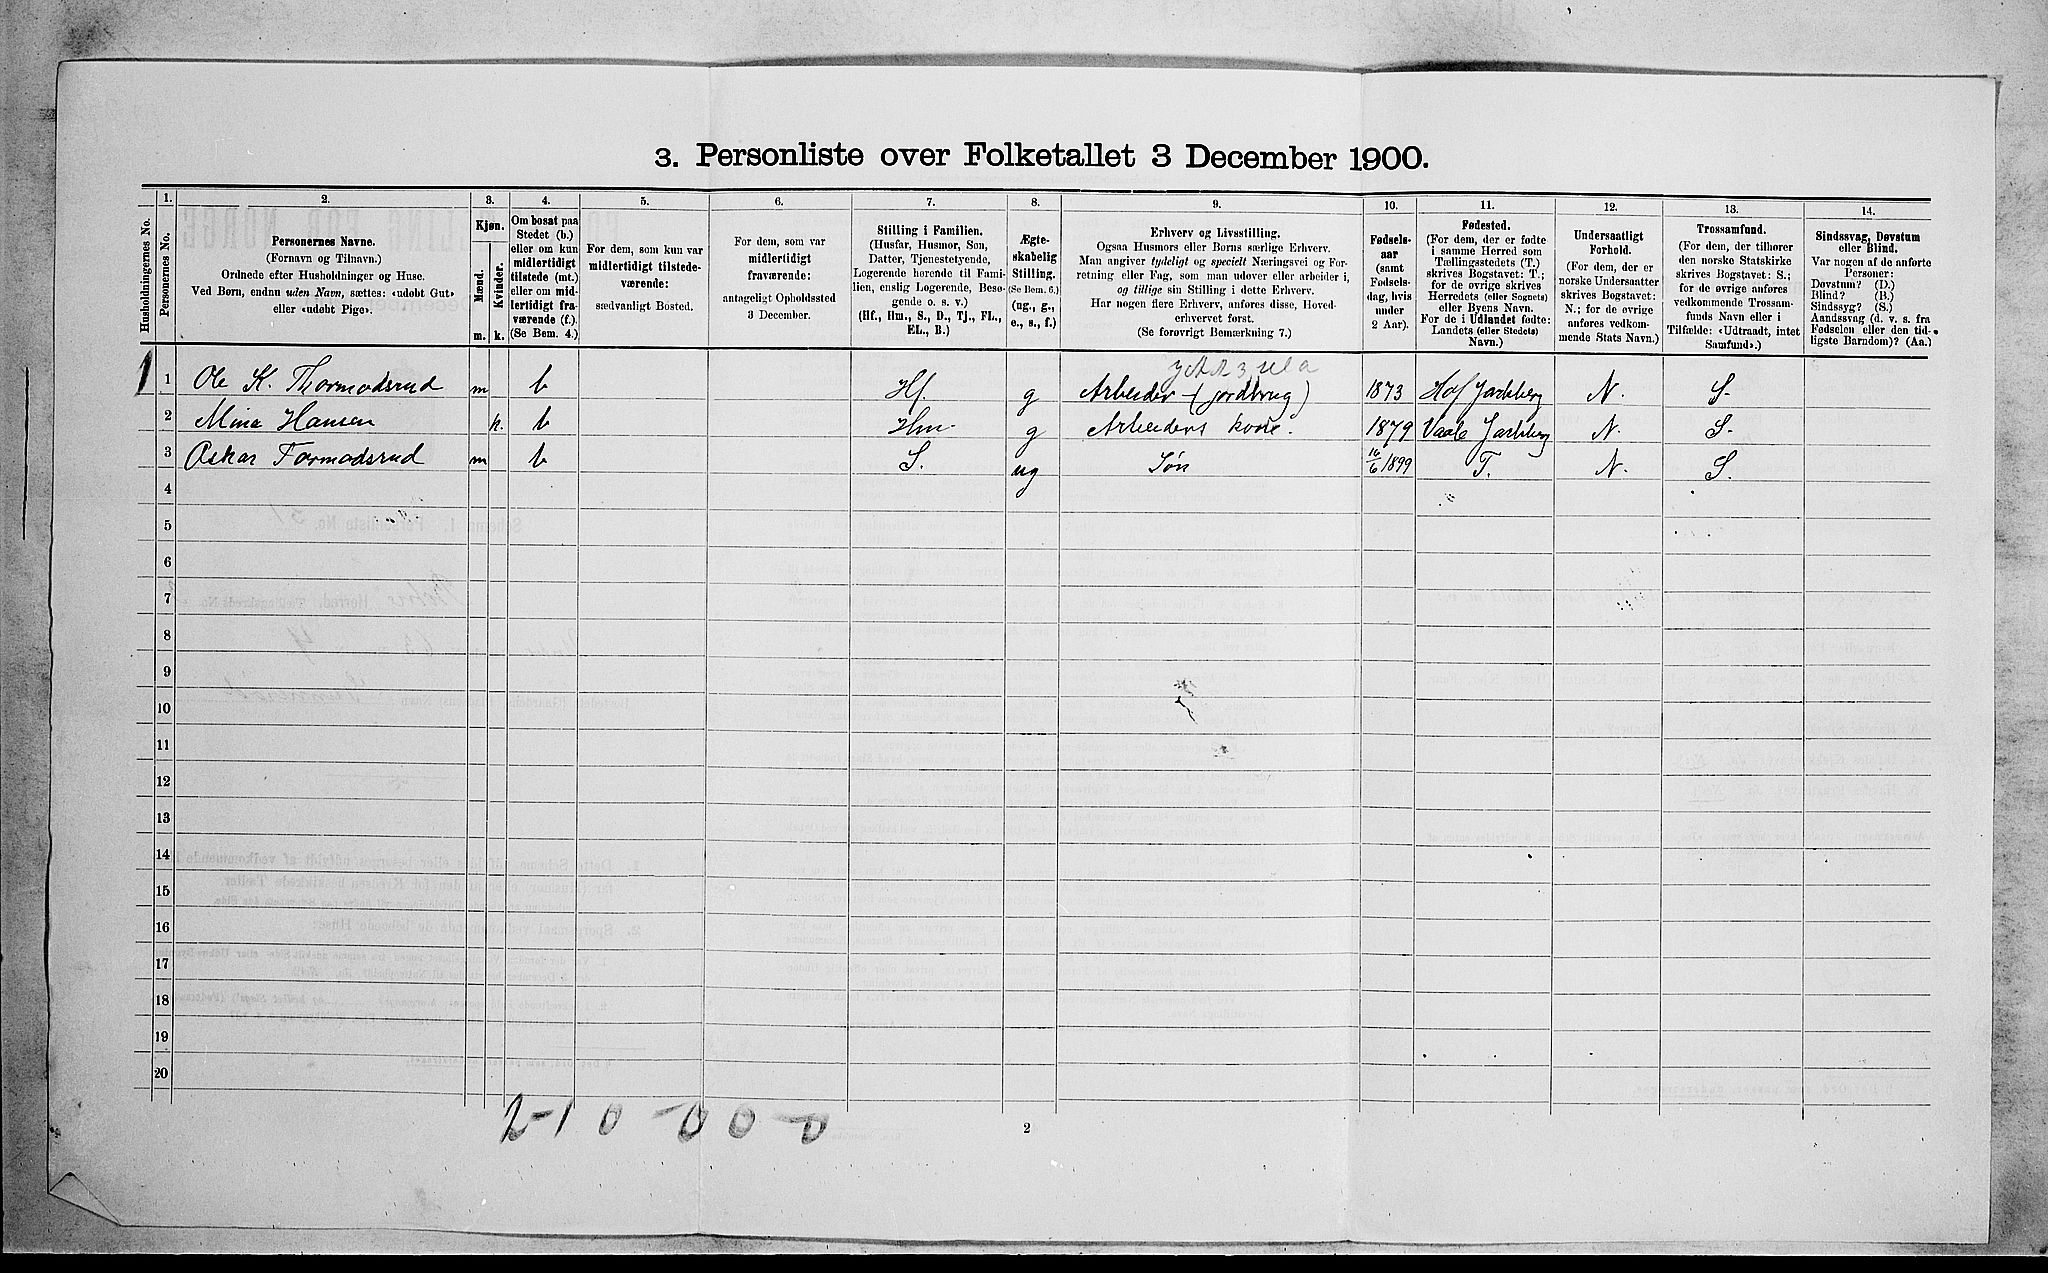 3. Personliste over Folketallet 3 December 1900.
Husholdningernes No.
1.
Personernes No.
2.
Personernes Navne.
(Fornavn og Tilnavn.)
Ordnede efter Husholdninger og Huse.
Ved Børn, endnu uden Navn, sættes: «udøbt Gut»
eller «udøbt Pige».
3.
Kjøn.
Mænd.
Kvinder.
m. k.
4.
Om bosat paa
Stedet (b.)
eller om kun
midlertidigt
tilstede (mt.)
eller om mid-
lertidigt fra-
værende (f.)
(Se Bem. 4.)
5.
For dem, som kun var
midlertidigt tilstede-
værende:
sædvanligt Bosted.
6.
For dem, som var
midlertidigt
fraværende:
antageligt Opholdssted
3 December.
7.
Stilling i Familien.
(Husfar, Husmor, Søn,
Datter, Tjenestetyende,
Logerende hørende til Fami-
lien, enslig Logerende, Besø-
gende o. s. v.)
(Hf., Hm., S., D., Tj., FL.,
EL., B.)
8.
Ægte-
skabelig
Stilling.
(Se Bem. 6.)
(ug., g.,
e., s., f.)
9.
Erhverv og Livsstilling.
Ogsaa Husmors eller Børns særlige Erhverv.
Man angiver tydeligt og specielt Næringsvei og For-
retning eller Fag, som man udøver eller arbeider i,
og tillige sin Stilling i dette Erhverv.
Har nogen flere Erhverv, anføres disse, Hoved-
erhvervet først.
(Se forøvrigt Bemærkning 7.)
10.
Fødsels-
aar
(samt
Fødsels-
dag, hvis
under
2 Aar).
11.
Fødested.
(For dem, der er fødte
i samme Herred som
Tællingsstedets (T.)
skrives Bogstavet: T.;
for de øvrige skrives
Herredets (eller Sognets)
eller Byens Navn.
For de i Udlandet fødte:
Landets (eller Stedets)
Navn.)
12.
Undersaatligt
Forhold.
(For dem, der er
norske Undersaatter
skrives Bogstavet:
N.; for de øvrige
anføres vedkom-
mende Stats Navn.)
13.
Trossamfund.
(For dem, der tilhører
den norske Statskirke
skrives Bogstavet: S.;
for de øvrige anføres
vedkommende Trossam-
funds Navn eller i
Tilfælde: «Udtraadt, intet
Samfund».)
14.
Sindssvag, Døvstum
eller Blind.
Var nogen af de anførte
Personer:
Døvstum? (D.)
Blind? (B.)
Sindssyg? (S.)
Aandssvag (d. v. s. fra
Fødselen eller den tid-
ligste Barndom)? (Aa.)
1 1 Ole K. Thormodsrud m b Hf. g Arbeider (jordbrug) 1873 Hof Jarlsberg N. S.
2 Mina Hansen k. b Hm g Arbeiders kone. 1879 Vaale Jarlsberg N. S.
3 Oskar Tormodsrud m b S. ug Søn 16/6 1899 T. N. S.
4
5
6
7
8
9
10
11
12
13
14
15
16
17
18
19
20
2-1 0-0 0-0
2